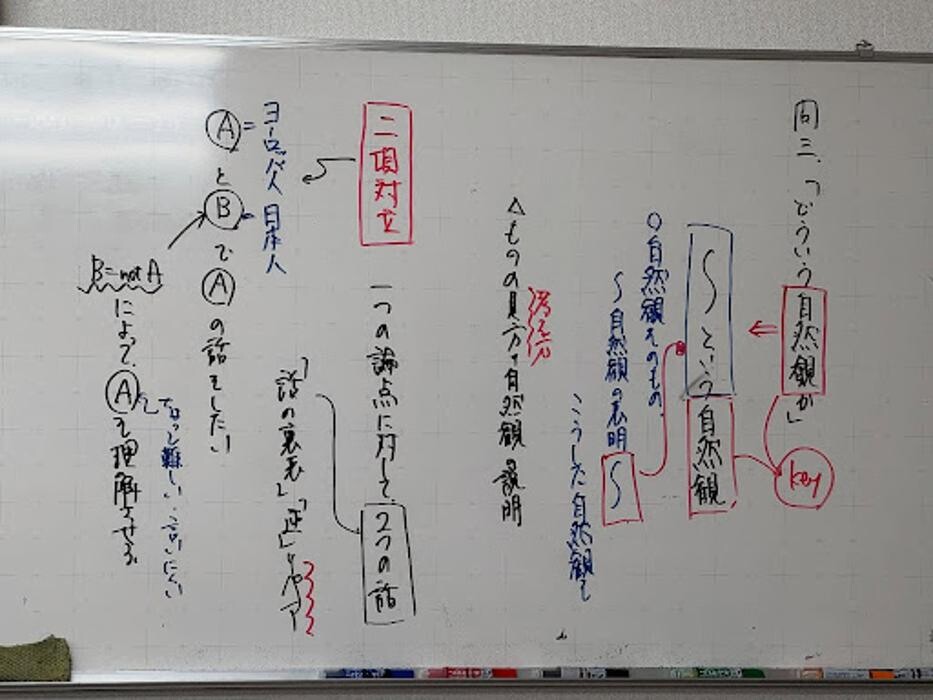 問三、「どういう自然観か」
key
〜という自然観
〇自然観そのもの、
〜自然観の表明〜
こうした自然観も
△ものの見方や自然観の説明
考え方
二項対立
一つの論点に対して、2つの話
「話の裏表」「逆」
ヨーロッパ人 日本人
A= と B= で A の話をしたい
B=not A によって、A を理解させる
難しい・言いにくい